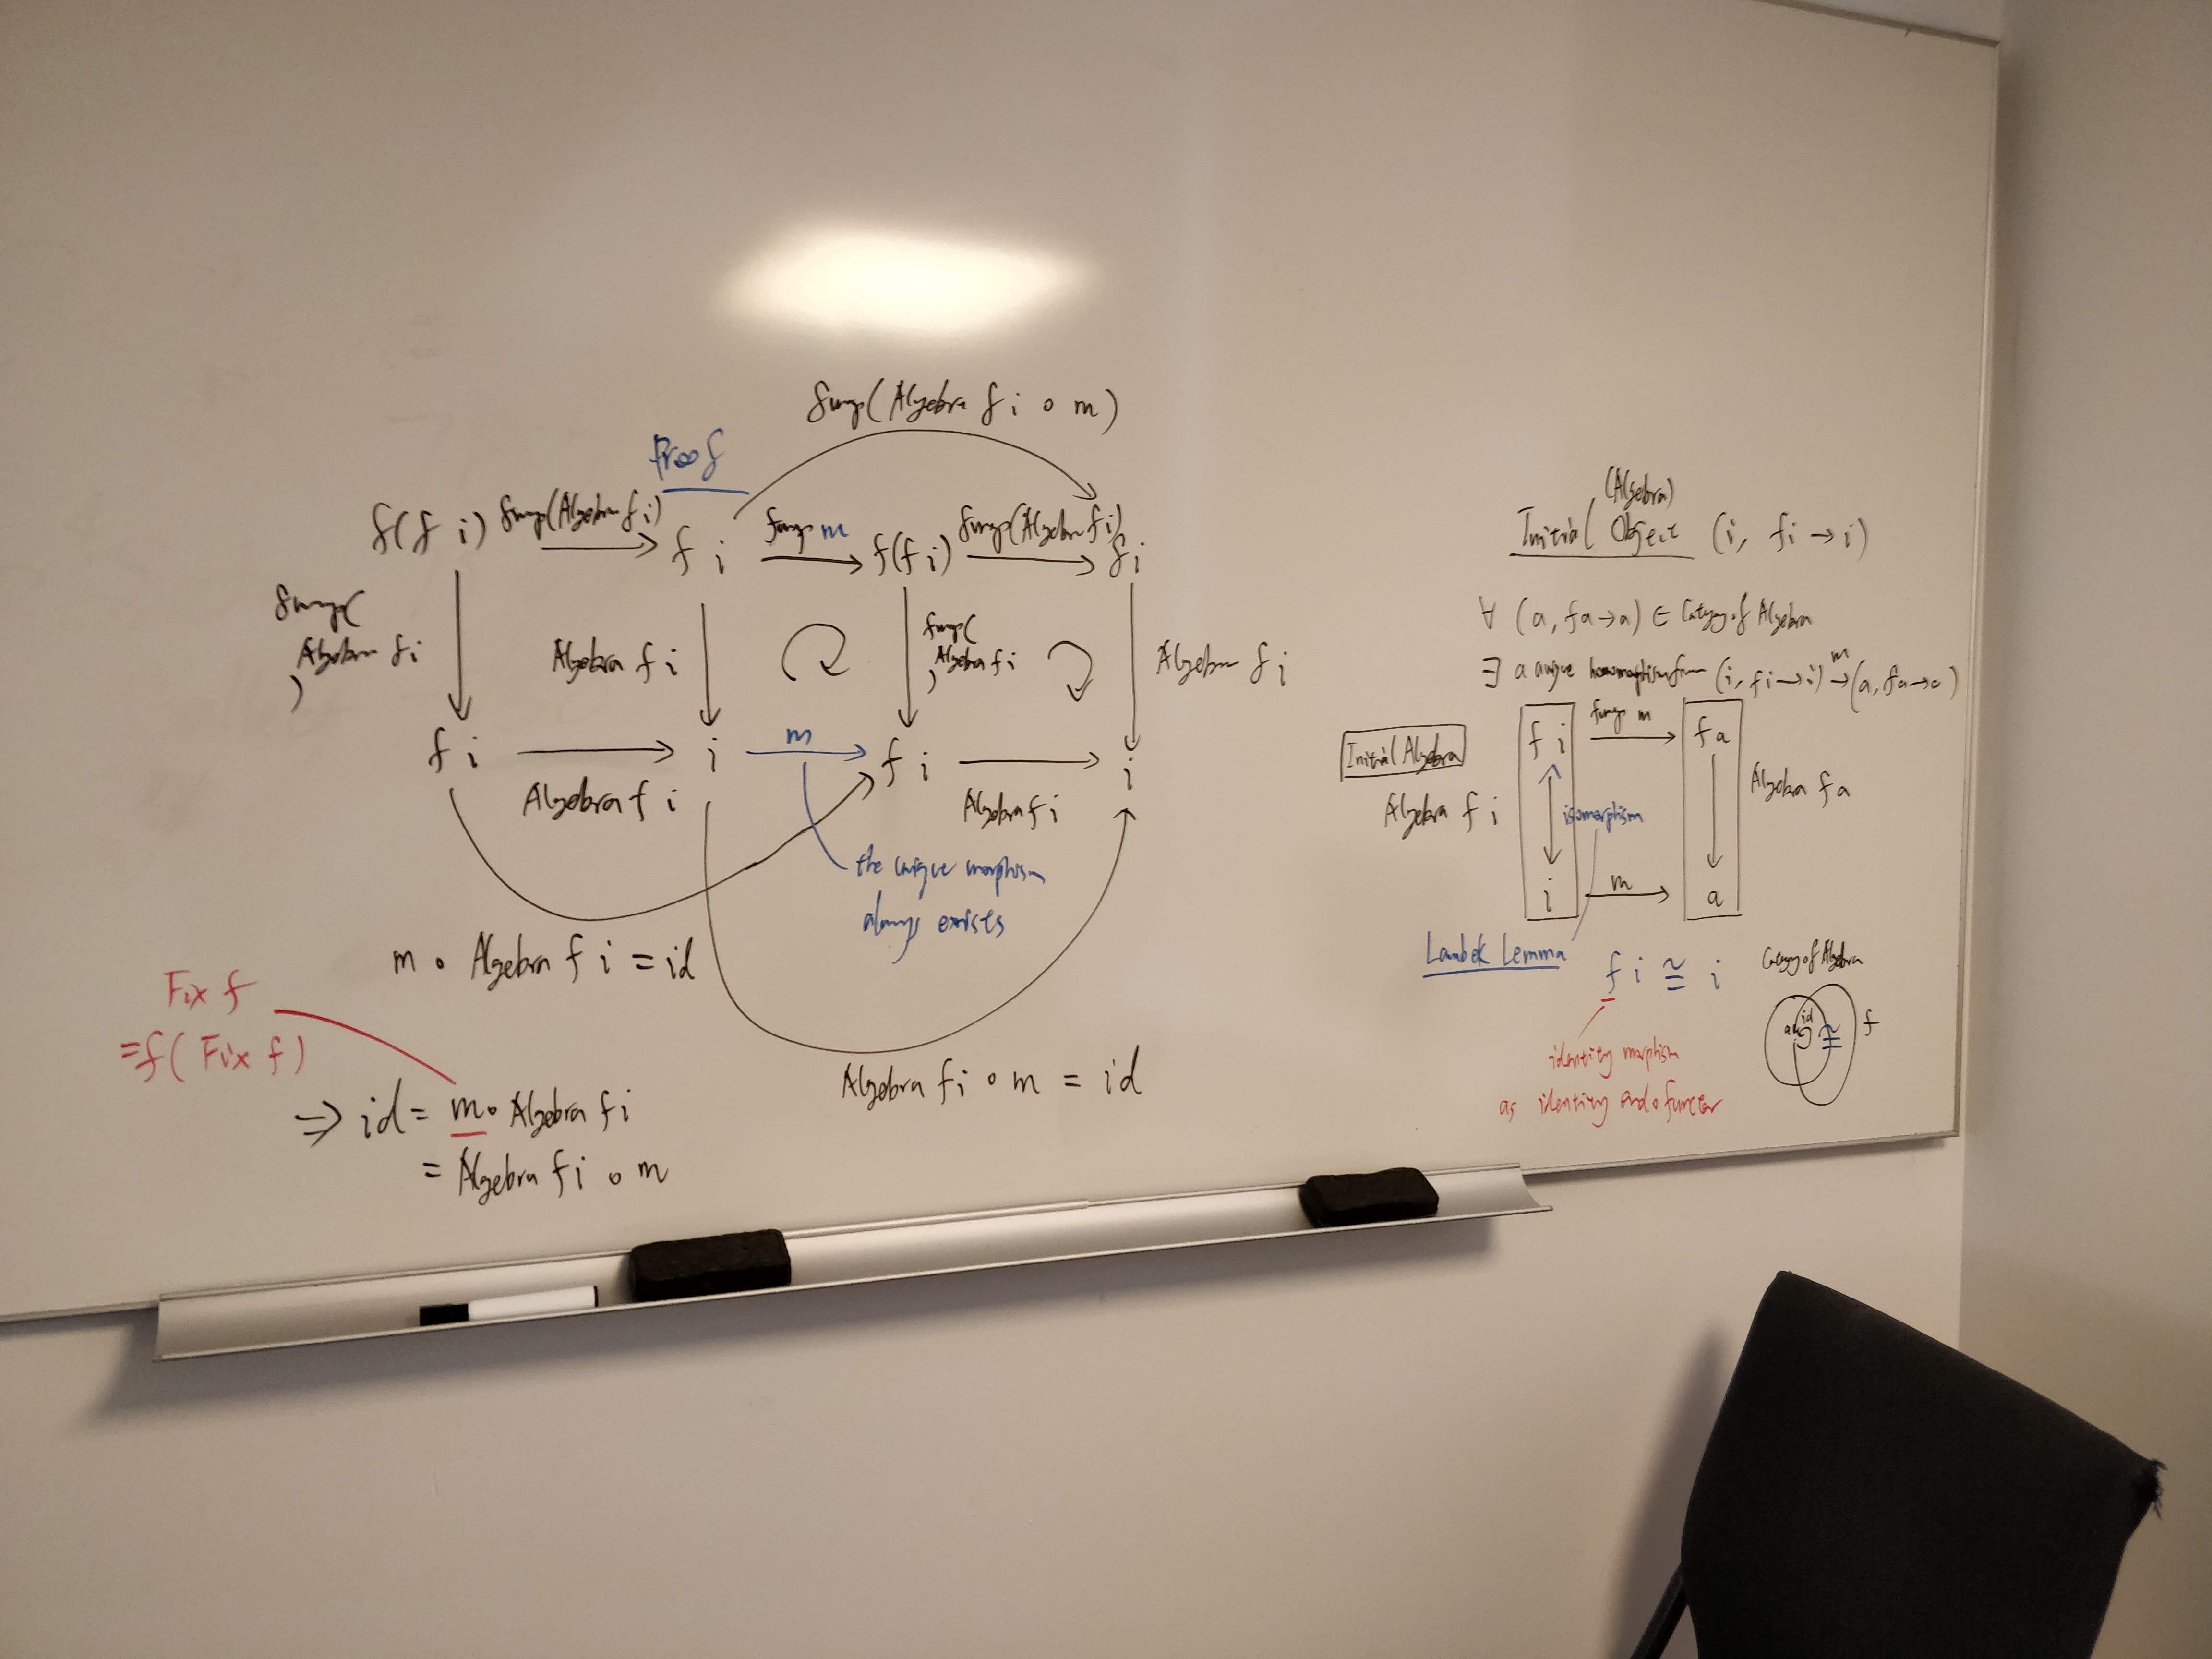 Proof
fmap(Algebra f i ∘ m)
f(f i) fmap(Algebra f i) f i fmap m f(f i) fmap(Algebra f i) f i
fmap(
Algebra f i
)
Algebra f i
fmap(
Algebra f i
)
Algebra f i
f i i m f i i
Algebra f i Algebra f i
the unique morphism
always exists
m ∘ Algebra f i = id
Algebra f i ∘ m = id
Fix f
= f(Fix f)
⇒ id = m ∘ Algebra f i
= Algebra f i ∘ m
(Algebra)
Initial Object (i, f i → i)
∀ (a, f a → a) ∈ Category of Algebra
∃ a unique homomorphism from (i, f i → i) →m (a, f a → a)
Initial Algebra
f i fmap m f a
Algebra f i isomorphism Algebra f a
i m a
Lambek Lemma f i ≅ i
identity morphism
as identity endofunctor
Category of Algebra
id ≅ f